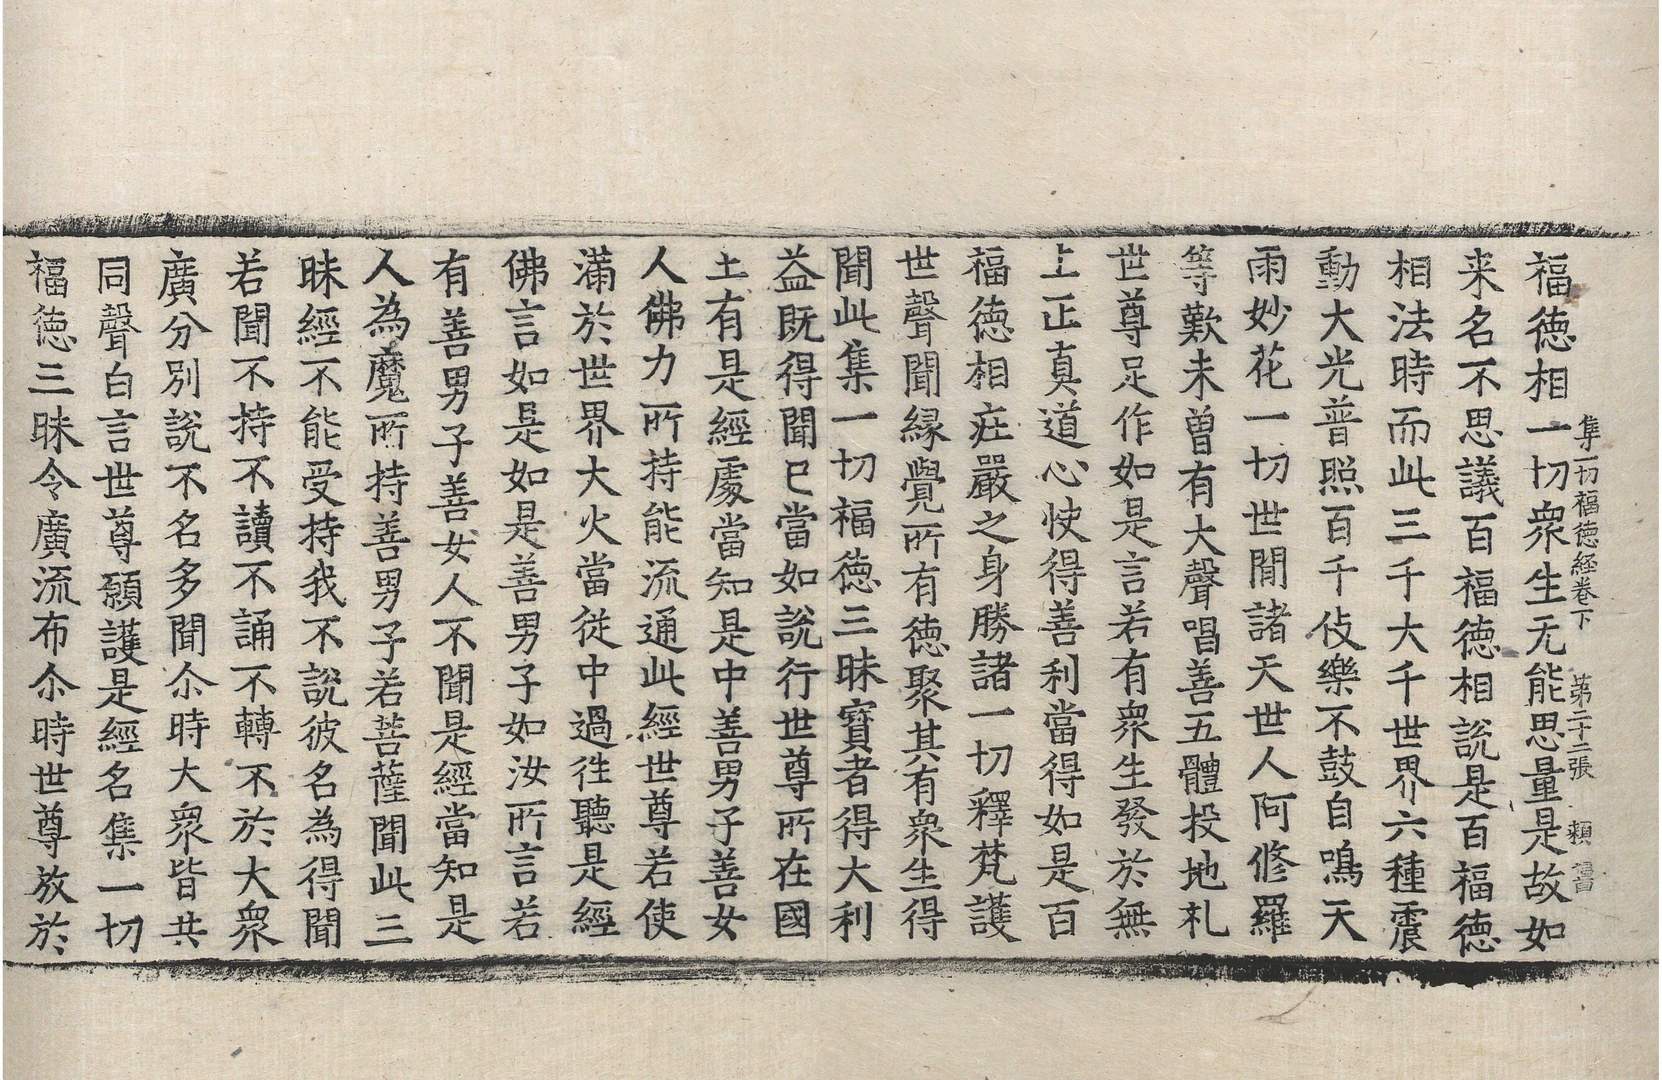 集一切福德経卷下　第二十二張　頼
福徳相一切衆生无能思量是故如
来名不思議百福徳相説是百福徳
相法時而此三千大千世界六種震
動大光普照百千伎樂不鼓自鳴天
雨妙花一切世閒諸天世人阿修羅
等歎未曽有大聲唱善五體投地礼
世尊足作如是言若有衆生發於無
上正真道心快得善利當得如是百
福徳相疘嚴之身勝諸一切釋梵護
世聲聞縁覺所有徳聚其有衆生得
聞此集一切福徳三昧寳者得大利
益既得聞已當如説行世尊所在國
土有是經處當知是中善男子善女
人佛力所持能流通此經世尊若使
滿於世界大火當従中過徃聽是經
佛言如是如是善男子如汝所言若
有善男子善女人不聞是經當知是
人為魔所持善男子若菩薩聞此三
昧經不能受持我不説彼名為得聞
若聞不持不讀不誦不轉不於大衆
廣分別説不名多聞尒時大衆皆共
同聲白言世尊願護是經名集一切
福徳三昧令廣流布尒時世尊放於